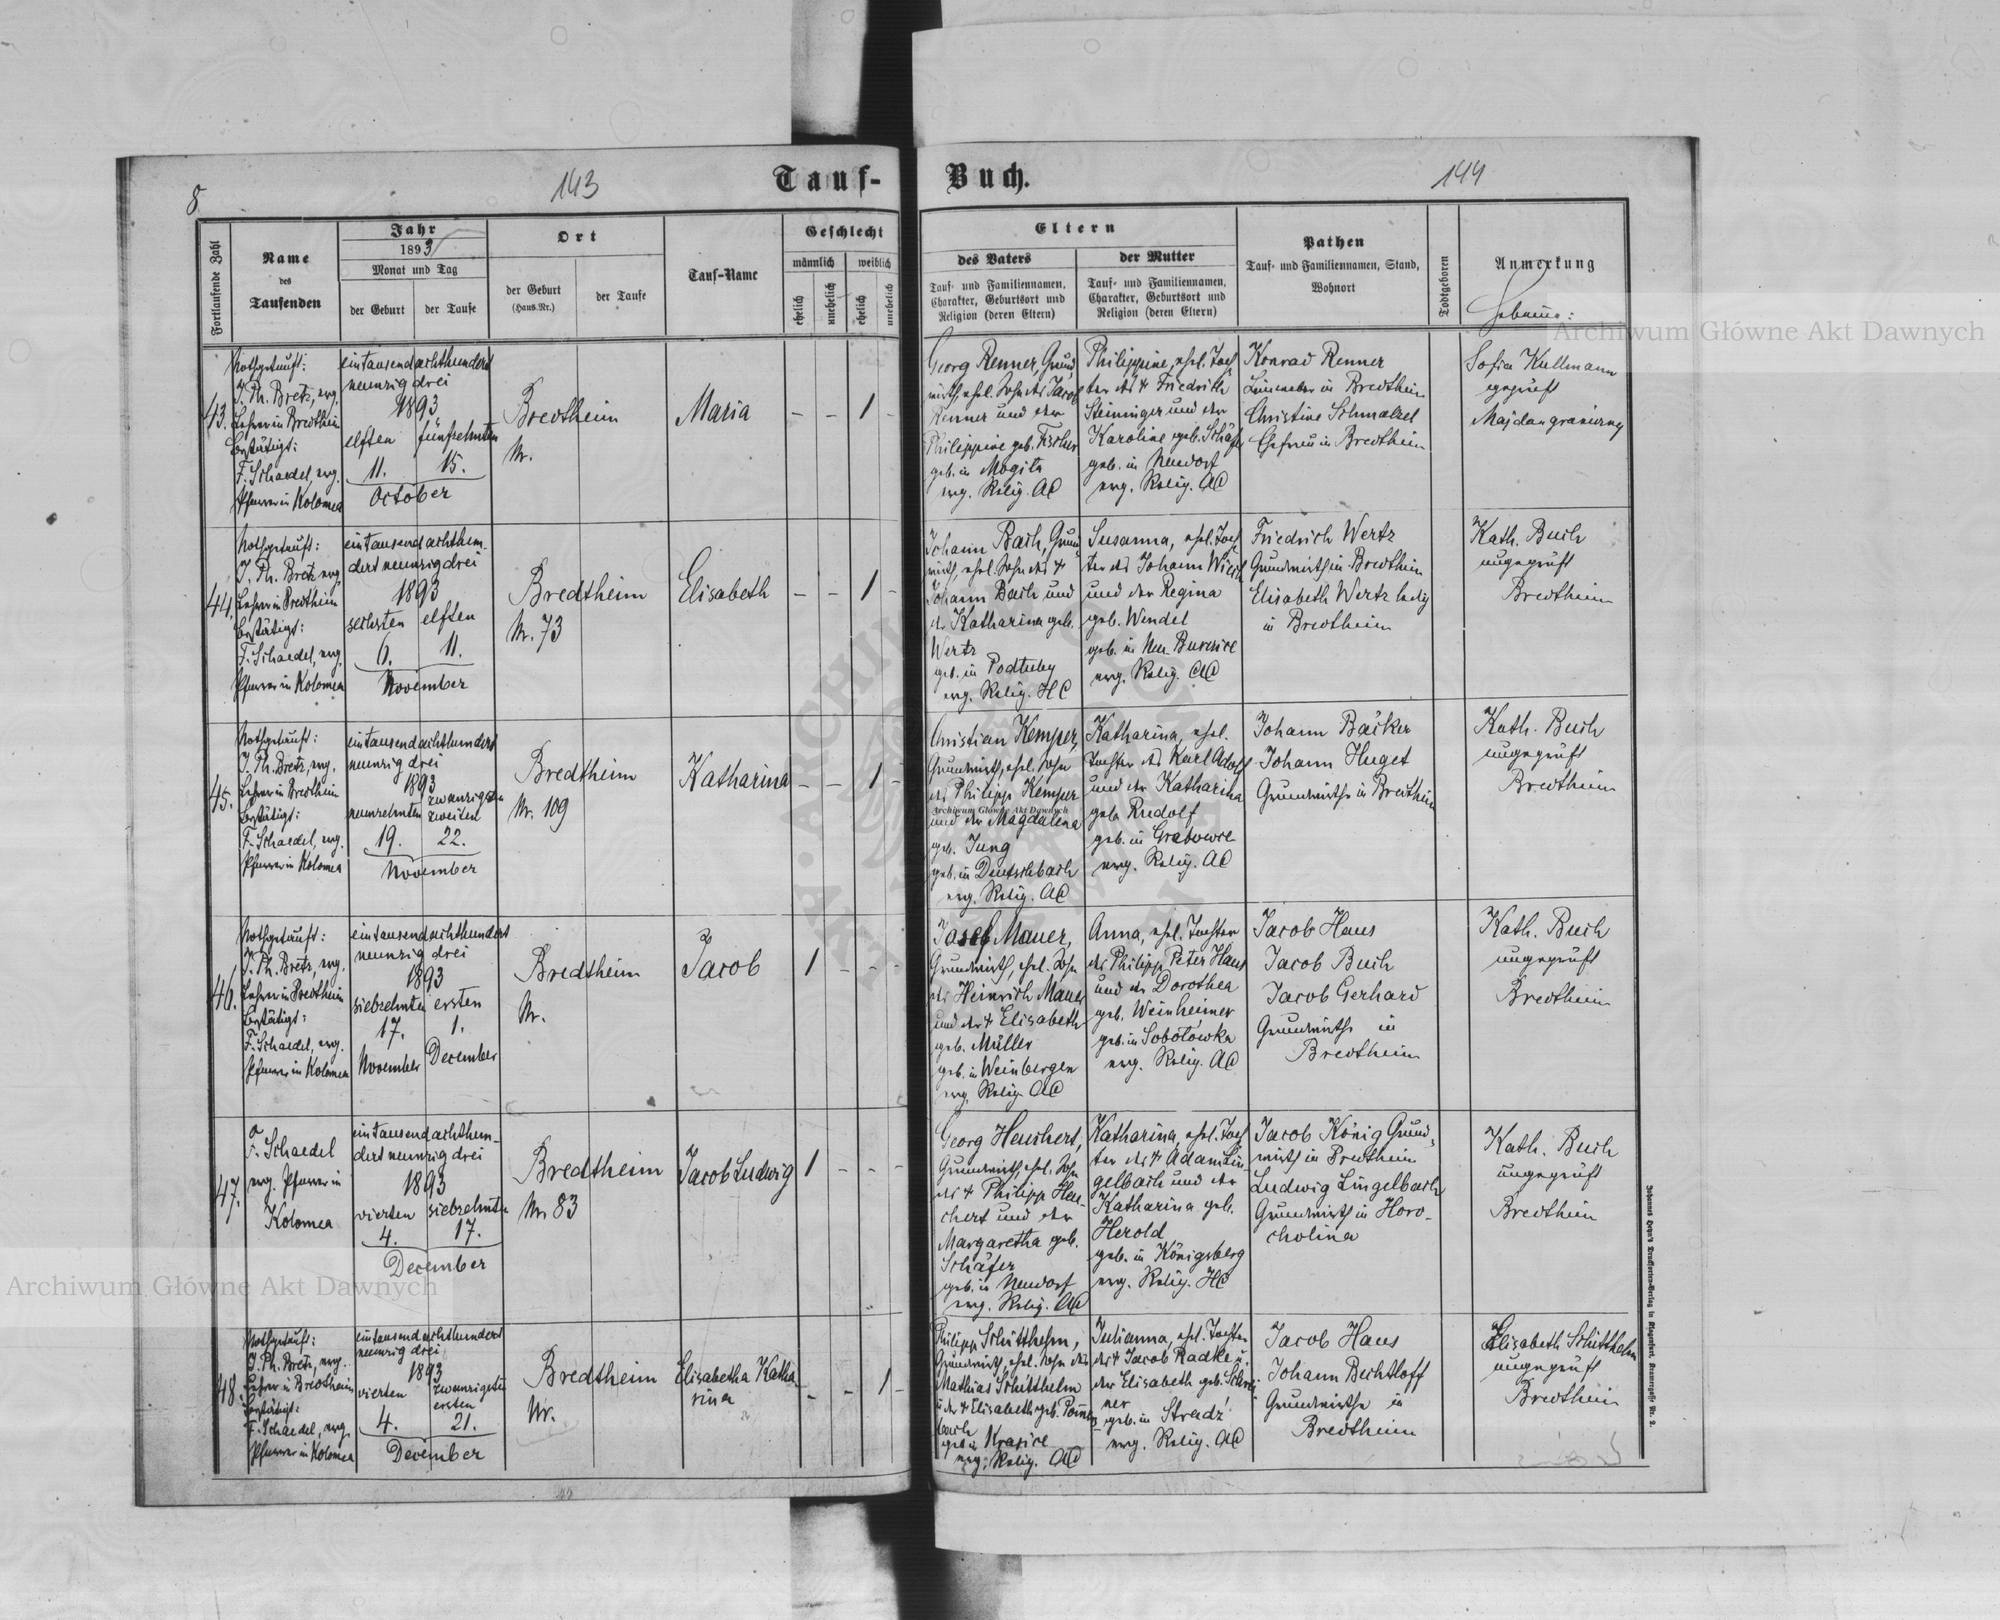 8
143
Tauf-
Buch.
144
Fortlaufende Zahl
Name
des
Taufenden
Jahr
1893
Monat und Tag
der Geburt
der Taufe
Ort
der Geburt
(Haus-Nr.)
der Taufe
Tauf-Name
Geschlecht
männlich
weiblich
ehelich
unehelich
ehelich
unehelich
Eltern
des Vaters
Tauf- und Familiennamen,
Charakter, Geburtsort und
Religion (deren Eltern)
der Mutter
Tauf- und Familiennamen,
Charakter, Geburtsort und
Religion (deren Eltern)
Pathen
Tauf- und Familiennamen, Stand,
Wohnort
Todtgeboren
Anmerkung
Archiwum Główne Akt Dawnych
43.
Nothgetauft:
J. Ph. Bretz, evg.
Lehrer in Bredtheim
Bestätigt:
F. Schaedel, evg.
Pfarrer in Kolomea
eintausendachthundert
neunzig drei
1893
elften fünfzehnten
11. 15.
October
Bredtheim
Nr.
Maria
– – 1 –
Georg Renner, Grund-
wirth, ehel. Sohn des Jacob
Renner und der
Philippine geb. Fischer
geb. in Mogila
evg. Relig. AC
Philippine, ehel. Toch-
ter des † Friedrich
Steininger und der
Karoline geb. Schäfer
geb. in Neudorf
evg. Relig. AC
Konrad Renner
in Bredtheim
Christine Schmalzel
Ehefrau in Bredtheim
Sofia Kullmann
geprüft
Majdan graniczny
44.
Nothgetauft:
J. Ph. Bretz evg.
Lehrer in Bredtheim
Bestätigt:
F. Schaedel, evg.
Pfarrer in Kolomea
eintausend achthun-
dert neunzig drei
1893
sechsten elften
6. 11.
November
Bredtheim
Nr. 73
Elisabeth
– – 1 –
Johann Bach, Grund-
wirth, ehel. Sohn des †
Johann Bach und
der Katharina geb.
Wertz
geb. in
evg. Relig. HC
Susanna, ehel. Toch-
ter des Johann
und der Regina
geb. Wendel
geb. in Neu
evg. Relig. AC
Friedrich Wertz
Grundwirth in Bredtheim
Elisabeth Wertz ledig
in Bredtheim
Kath. Buch
ungeprüft
Bredtheim
45.
Nothgetauft:
J. Ph. Bretz, evg.
Lehrer in Bredtheim
Bestätigt:
F. Schaedel, evg.
Pfarrer in Kolomea
eintausendachthundert
neunzig drei
1893
neunzehnten zwanzigsten
zweiten
19. 22.
November
Bredtheim
Nr. 109
Katharina
– – 1 –
Christian Kemper,
Grundwirth, ehel. Sohn
des Philipp Kemper
Archiwum Główne Akt Dawnych
und der Magdalena
geb. Jung
geb. in Deutschbach
evg. Relig. AC
Katharina, ehel.
Tochter des Karl Adolf
und der Katharina
geb. Rudolf
geb. in Grabowce
evg. Relig. AC
Johann Bäcker
Johann Huget
Grundwirthe in Bredtheim
Kath. Buch
ungeprüft
Bredtheim
46.
Nothgetauft:
J. Ph. Bretz, evg.
Lehrer in Bredtheim
Bestätigt:
F. Schaedel, evg.
Pfarrer in Kolomea
eintausendachthundert
neunzig drei
1893
siebzehnten ersten
17. 1.
November December
Bredtheim
Nr.
Jacob
1 – – –
Josef Mauer,
Grundwirth, ehel. Sohn
des Heinrich Mauer
und der † Elisabeth
geb. Müller
geb. in Weinbergen
evg. Relig. AC
Anna, ehel. Tochter
des Philipp Peter Haus
und der Dorothea
geb. Weinheimer
geb. in Sobotówka
evg. Relig. AC
Jacob Haus
Jacob Buch
Jacob Gerhard
Grundwirthe in
Bredtheim
Kath. Buch
ungeprüft
Bredtheim
47.
F. Schaedel
evg. Pfarrer in
Kolomea
eintausend achthun-
dert neunzig drei
1893
vierten siebzehnten
4. 17.
December
Bredtheim
Nr. 83
Jacob Ludwig
1 – – –
Georg Heuchert,
Grundwirth, ehel. Sohn
des † Philipp Heu-
chert und der
Margaretha geb.
Schäfer
geb. in Neudorf
evg. Relig. AC
Katharina, ehel. Toch-
ter des † Adam Lin-
gelbach und der
Katharina geb.
Herold
geb. in Königsberg
evg. Relig. HC
Jacob König Grund-
wirth in Bredtheim
Ludwig Lingelbach
Grundwirth in Horo-
cholina
Kath. Buch
ungeprüft
Bredtheim
Archiwum Główne Akt Dawnych
48.
Nothgetauft:
J. Ph. Bretz, evg.
Lehrer in Bredtheim
Bestätigt:
F. Schaedel, evg.
Pfarrer in Kolomea
eintausendachthundert
neunzig drei
1893
vierten zwanzigsten
ersten
4. 21.
December
Bredtheim
Nr.
Elisabetha Katha-
rina
– – 1 –
Philipp Schitthelm,
Grundwirth, ehel. Sohn des
Mathias Schitthelm
u. der † Elisabeth geb.
geb. in Krasice
evg. Relig. AC
Julianna, ehel. Tochter
des † Jacob Radke u.
der Elisabeth geb. Schrei-
ner
geb. in Stradz
evg. Relig. AC
Jacob Haus
Johann Bechtloff
Grundwirthe in
Bredtheim
Elisabeth Schitthelm
ungeprüft
Bredtheim